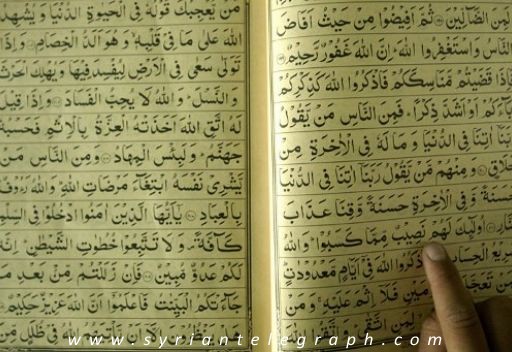 لَمِنَ الضَّآلِّيْنَ ثُمَّ اَفِيْضُوْا مِنْ حَيْثُ اَفَاضَ
النَّاسُ وَاسْتَغْفِرُوا اللّٰهَ اِنَّ اللّٰهَ غَفُوْرٌ رَّحِيْمٌ
فَاِذَا قَضَيْتُمْ مَّنَاسِكَكُمْ فَاذْكُرُوا اللّٰهَ كَذِكْرِكُمْ
بَآءَكُمْ اَوْ اَشَدَّ ذِكْرًا فَمِنَ النَّاسِ مَنْ يَّقُوْلُ
بَّنَآ اٰتِنَا فِي الدُّنْيَا وَمَا لَهٗ فِي الْاٰخِرَةِ مِنْ
لَاقٍ وَمِنْهُمْ مَّنْ يَّقُوْلُ رَبَّنَآ اٰتِنَا فِي الدُّنْيَا
سَنَةً وَّفِي الْاٰخِرَةِ حَسَنَةً وَّقِنَا عَذَابَ
نَّارِ اُولٰٓئِكَ لَهُمْ نَصِيْبٌ مِّمَّا كَسَبُوْا وَاللّٰهُ
رِيْعُ الْحِسَابِ ذْكُرُوا اللّٰهَ فِيْٓ اَيَّامٍ مَّعْدُوْدٰتٍ
مَنْ تَعَجَّلَ مَيْنِ فَلَآ اِثْمَ عَلَيْهِ وَمَنْ
لِمَنِ اتَّقٰى وَاتَّقُوا اللّٰهَ
مَنْ يُّعْجِبُكَ قَوْلُهٗ فِي الْحَيٰوةِ الدُّنْيَا وَيُشْهِدُ
اللّٰهَ عَلٰى مَا فِيْ قَلْبِهٖ وَهُوَ اَلَدُّ الْخِصَامِ وَاِذَا
تَوَلّٰى سَعٰى فِي الْاَرْضِ لِيُفْسِدَ فِيْهَا وَيُهْلِكَ الْحَرْثَ
وَالنَّسْلَ وَاللّٰهُ لَا يُحِبُّ الْفَسَادَ وَاِذَا قِيْلَ
لَهُ اتَّقِ اللّٰهَ اَخَذَتْهُ الْعِزَّةُ بِالْاِثْمِ فَحَسْبُهٗ
جَهَنَّمُ وَلَبِئْسَ الْمِهَادُ وَمِنَ النَّاسِ مَنْ
يَّشْرِيْ نَفْسَهُ ابْتِغَآءَ مَرْضَاتِ اللّٰهِ وَاللّٰهُ رَءُوْفٌ
بِالْعِبَادِ يٰٓاَيُّهَا الَّذِيْنَ اٰمَنُوا ادْخُلُوْا فِي السِّلْمِ
كَآفَّةً وَّلَا تَتَّبِعُوْا خُطُوٰتِ الشَّيْطٰنِ اِنَّهٗ
لَكُمْ عَدُوٌّ مُّبِيْنٌ فَاِنْ زَلَلْتُمْ مِّنْ بَعْدِ مَا
جَآءَتْكُمُ الْبَيِّنٰتُ فَاعْلَمُوْٓا اَنَّ اللّٰهَ عَزِيْزٌ حَكِيْمٌ
هَلْ يَنْظُرُوْنَ اِلَّآ اَنْ يَّاْتِيَهُمُ اللّٰهُ فِيْ ظُلَلٍ مِّنَ
www.syriantelegraph.com